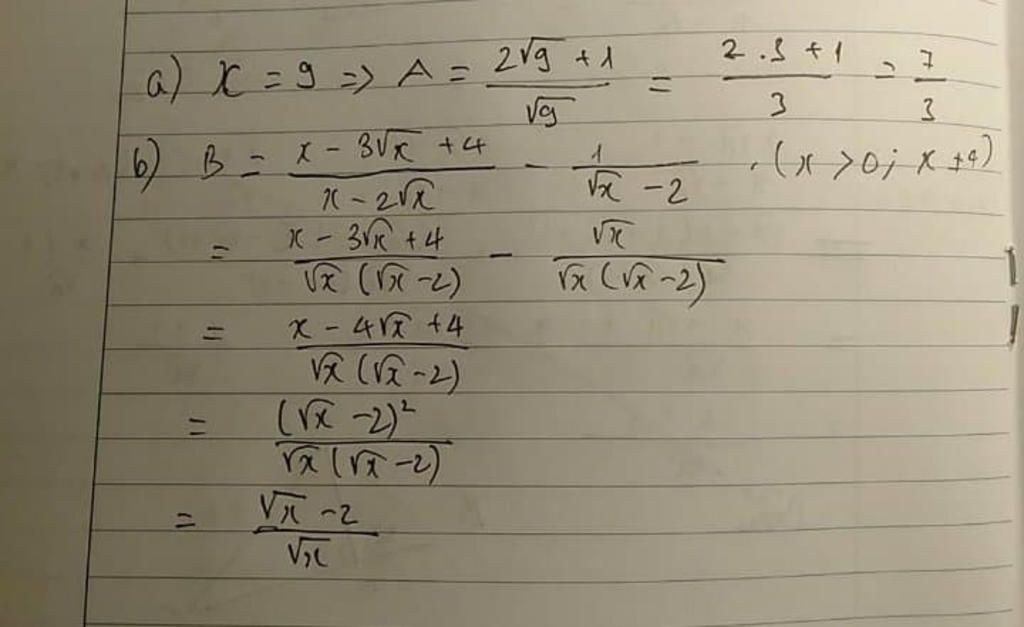 a) x = 9 => A = (2√9 + 1)/√9 = (2.3 + 1)/3 = 7/3
b) B = (x - 3√x + 4)/(x - 2√x) - 1/(√x - 2) . (x > 0; x ≠ 4)
= (x - 3√x + 4)/(√x (√x - 2)) - √x/(√x (√x - 2))
= (x - 4√x + 4)/(√x (√x - 2))
= (√x - 2)²/(√x (√x - 2))
= (√x - 2)/√x